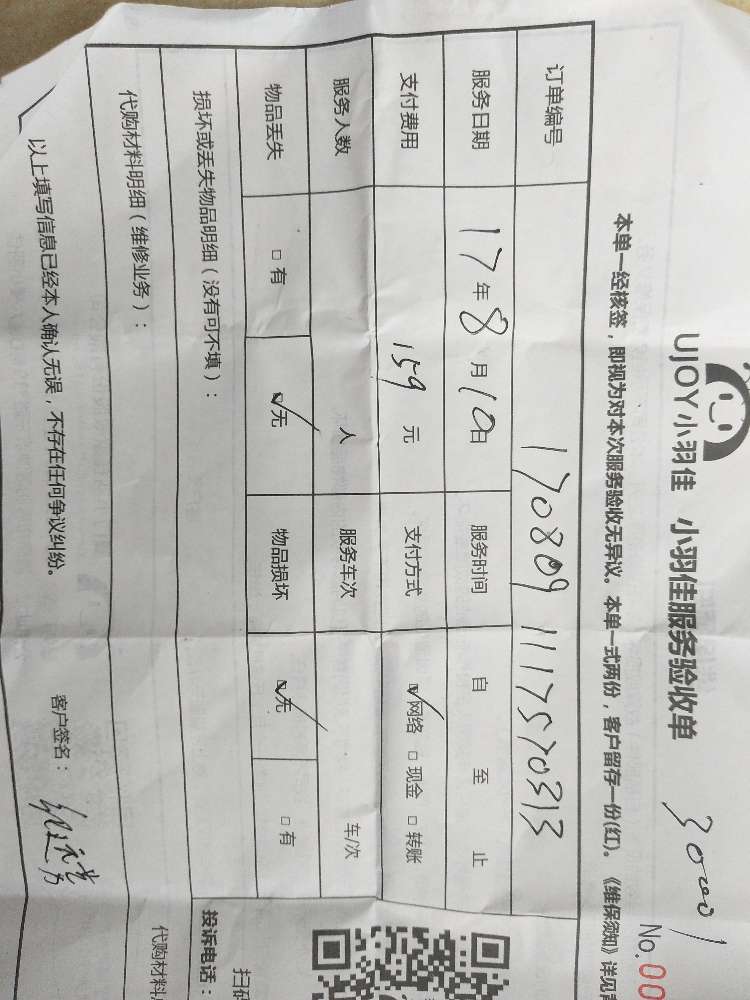 UJOY小羽佳 小羽佳服务验收单
No.00
本单一经核签，即视为对本次服务验收无异议。本单一式两份，客户留存一份(红)。《维保须知》详见
订单编号 1708091117570313
服务日期 17年8月10日 服务时间 自 至 止
支付费用 159元 支付方式 ☑网络 □现金 □转账
服务人数 人 服务车次 车/次
物品丢失 □有 ☑无 物品损坏 ☑无 □有
损坏或丢失物品明细（没有可不填）：
代购材料明细（维修业务）：
以上填写信息已经本人确认无误，不存在任何争议纠纷。 客户签名：
投诉电话：
扫码
代购材料